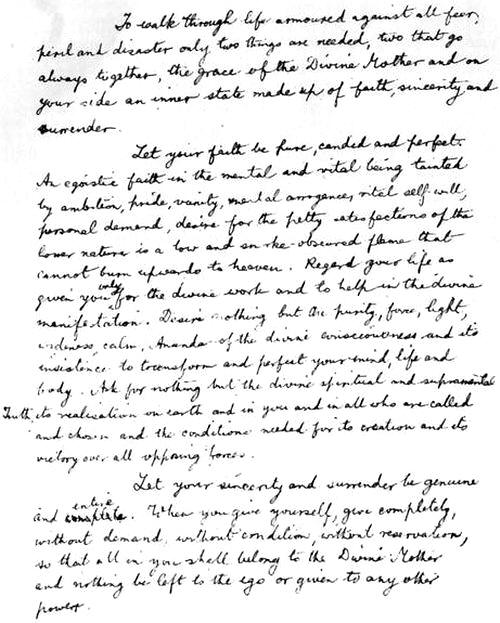 To walk through life armoured against all fear,
peril and disaster only two things are needed, two that go
always together, the grace of the Divine Mother and on
your side an inner state made up of faith, sincerity and
surrender.
Let your faith be pure, candid and perfect.
An egoistic faith in the mental and vital being tainted
by ambition, pride, vanity, mental arrogance, vital self-will,
personal demand, desire for the petty satisfactions of the
lower nature is a low and smoke-obscured flame that
cannot burn upwards to heaven. Regard your life as
given you only for the divine work and to help in the divine
manifestation. Desire nothing but the purity, force, light,
wideness, calm, Ananda of the divine consciousness and its
insistence to transform and perfect your mind, life and
body. Ask for nothing but the divine spiritual and supramental
Truth, its realisation on earth and in you and in all who are called
and chosen and the conditions needed for its creation and its
victory over all opposing forces.
Let your sincerity and surrender be genuine
and entire. When you give yourself, give completely,
without demand, without condition, without reservation,
so that all in you shall belong to the Divine Mother
and nothing be left to the ego or given to any other
power.